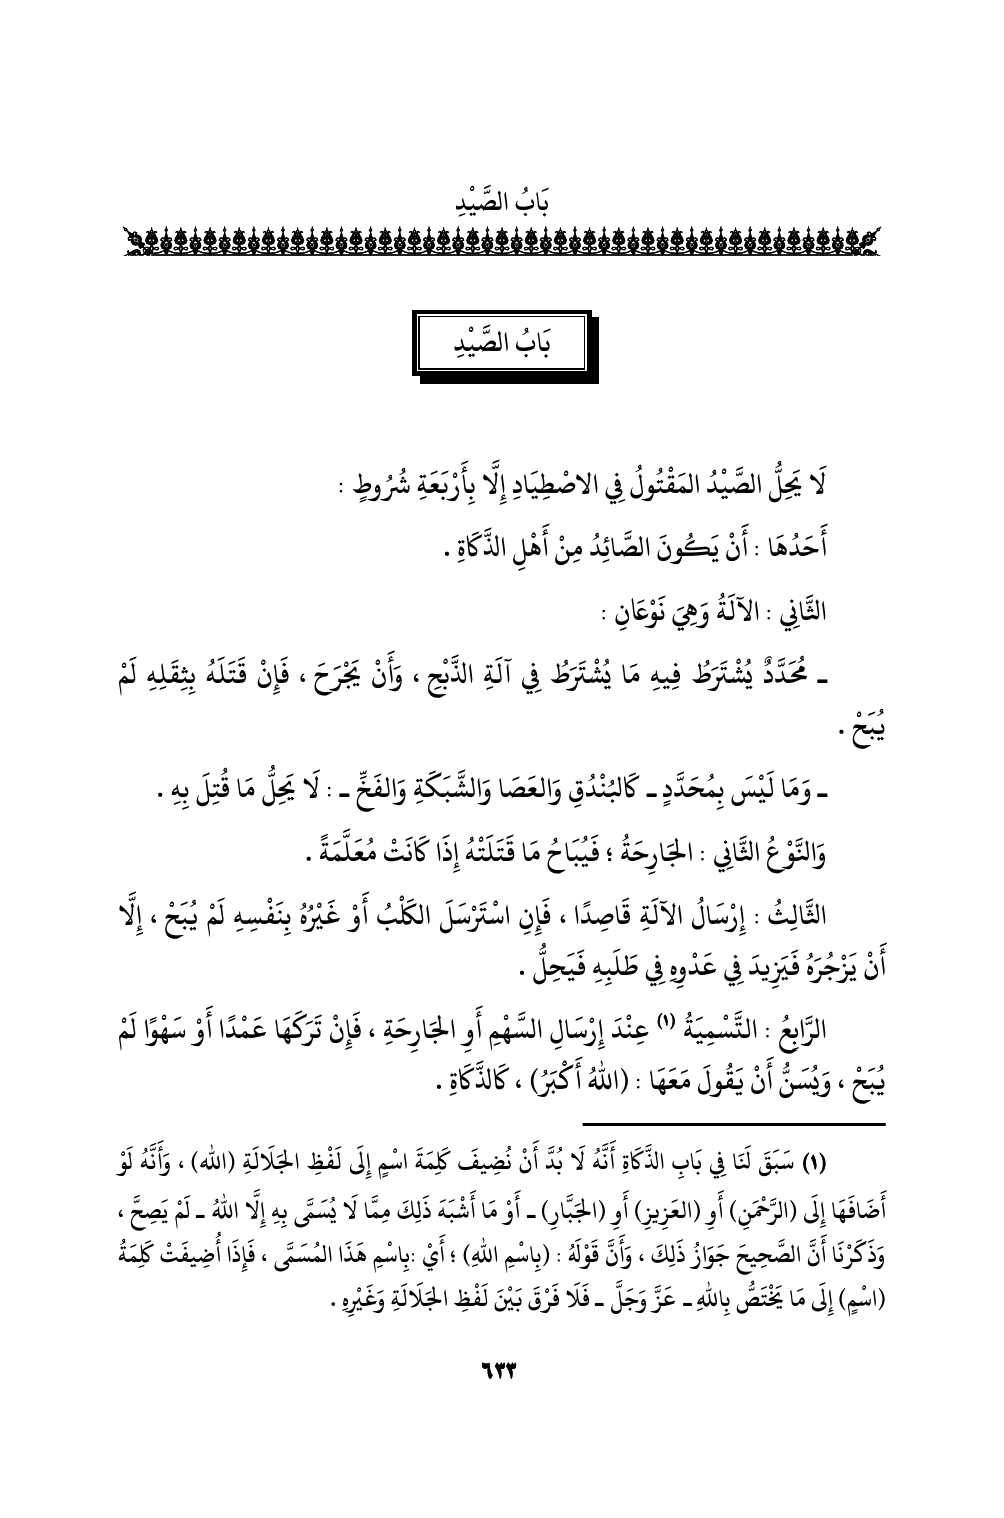 بَابُ الصَّيْدِ
بَابُ الصَّيْدِ
لَا يَحِلُّ الصَّيْدُ المَقْتُولُ فِي الاصْطِيَادِ إِلَّا بِأَرْبَعَةِ شُرُوطٍ :
أَحَدُهَا : أَنْ يَكُونَ الصَّائِدُ مِنْ أَهْلِ الذَّكَاةِ .
الثَّانِي : الآلَةُ وَهِيَ نَوْعَانِ :
ـ مُحَدَّدٌ يُشْتَرَطُ فِيهِ مَا يُشْتَرَطُ فِي آلَةِ الذَّبْحِ ، وَأَنْ يَجْرَحَ ، فَإِنْ قَتَلَهُ بِثِقَلِهِ لَمْ
يُبَحْ .
ـ وَمَا لَيْسَ بِمُحَدَّدٍ ـ كَالبُنْدُقِ وَالعَصَا وَالشَّبَكَةِ وَالفَخِّ ـ : لَا يَحِلُّ مَا قُتِلَ بِهِ .
وَالنَّوْعُ الثَّانِي : الجَارِحَةُ ؛ فَيُبَاحُ مَا قَتَلَتْهُ إِذَا كَانَتْ مُعَلَّمَةً .
الثَّالِثُ : إِرْسَالُ الآلَةِ قَاصِدًا ، فَإِنِ اسْتَرْسَلَ الكَلْبُ أَوْ غَيْرُهُ بِنَفْسِهِ لَمْ يُبَحْ ، إِلَّا
أَنْ يَزْجُرَهُ فَيَزِيدَ فِي عَدْوِهِ فِي طَلَبِهِ فَيَحِلُّ .
الرَّابِعُ : التَّسْمِيَةُ (١) عِنْدَ إِرْسَالِ السَّهْمِ أَوِ الجَارِحَةِ ، فَإِنْ تَرَكَهَا عَمْدًا أَوْ سَهْوًا لَمْ
يُبَحْ ، وَيُسَنُّ أَنْ يَقُولَ مَعَهَا : (اللهُ أَكْبَرُ) ، كَالذَّكَاةِ .
(١) سَبَقَ لَنَا فِي بَابِ الذَّكَاةِ أَنَّهُ لَا بُدَّ أَنْ نُضِيفَ كَلِمَةَ اسْمٍ إِلَى لَفْظِ الجَلَالَةِ (الله) ، وَأَنَّهُ لَوْ
أَضَافَهَا إِلَى (الرَّحْمَنِ) أَوِ (العَزِيزِ) أَوِ (الجَبَّارِ) ـ أَوْ مَا أَشْبَهَ ذَلِكَ مِمَّا لَا يُسَمَّى بِهِ إِلَّا اللهُ ـ لَمْ يَصِحَّ ،
وَذَكَرْنَا أَنَّ الصَّحِيحَ جَوَازُ ذَلِكَ ، وَأَنَّ قَوْلَهُ : (بِاسْمِ اللهِ) ؛ أَيْ :بِاسْمِ هَذَا المُسَمَّى ، فَإِذَا أُضِيفَتْ كَلِمَةُ
(اسْمٍ) إِلَى مَا يَخْتَصُّ بِاللهِ ـ عَزَّ وَجَلَّ ـ فَلَا فَرْقَ بَيْنَ لَفْظِ الجَلَالَةِ وَغَيْرِهِ .
٦٣٣